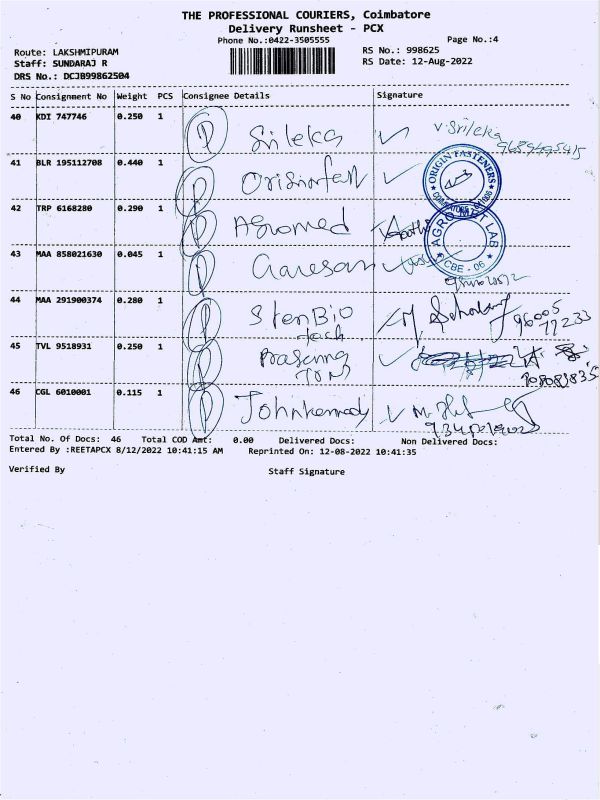 THE PROFESSIONAL COURIERS, Coimbatore
Delivery Runsheet - PCX
Phone No.:0422-3505555 Page No.:4
Route: LAKSHMIPURAM RS No.: 998625
Staff: SUNDARAJ R RS Date: 12-Aug-2022
DRS No.: DCJB99862504
S No Consignment No Weight PCS Consignee Details Signature
40 KDI 747746 0.250 1 P Srileka V.Srileka
41 BLR 195112708 0.440 1 P
ORIGIN FASTENERS
42 TRP 6168280 0.290 1 P Agromed
AGRO MET LAB
CBE - 06
43 MAA 858021630 0.045 1 P Ganesan
44 MAA 291900374 0.280 1 P Sten Bio
Tech 96005
77233
45 TVL 9518931 0.250 1 P Prasanna
46 CGL 6010001 0.115 1 P Johnkennady
Total No. Of Docs: 46 Total COD Amt: 0.00 Delivered Docs: Non Delivered Docs:
Entered By :REETAPCX 8/12/2022 10:41:15 AM Reprinted On: 12-08-2022 10:41:35
Verified By Staff Signature